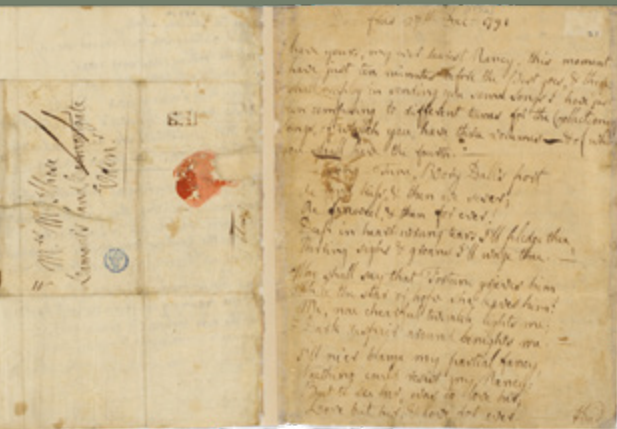 Mrs McLehose
Edin.
Dec 1791
have yours, my ever dearest Nancy, this moment
have just ten minutes before the Post goes, & these
shall employ in sending you some Songs I have just
been composing to different tunes for the Collection
songs, of which you have three volumes — & of which
you shall have the fourth. —
Tune, Rory Dall's port
kiss, & then we sever;
farewell, & then for ever!
Deep in heart-wrung tears I'll pledge thee,
Warring sighs & groans I'll wage thee. —
Who shall say that Fortune grieves him
While the star of hope she leaves him:
Me, nae chearful twinkle lights me;
Dark despair around benights me. —
I'll ne'er blame my partial fancy,
Naething could resist my Nancy:
But to see her, was to love her;
Love but her, & love for ever.